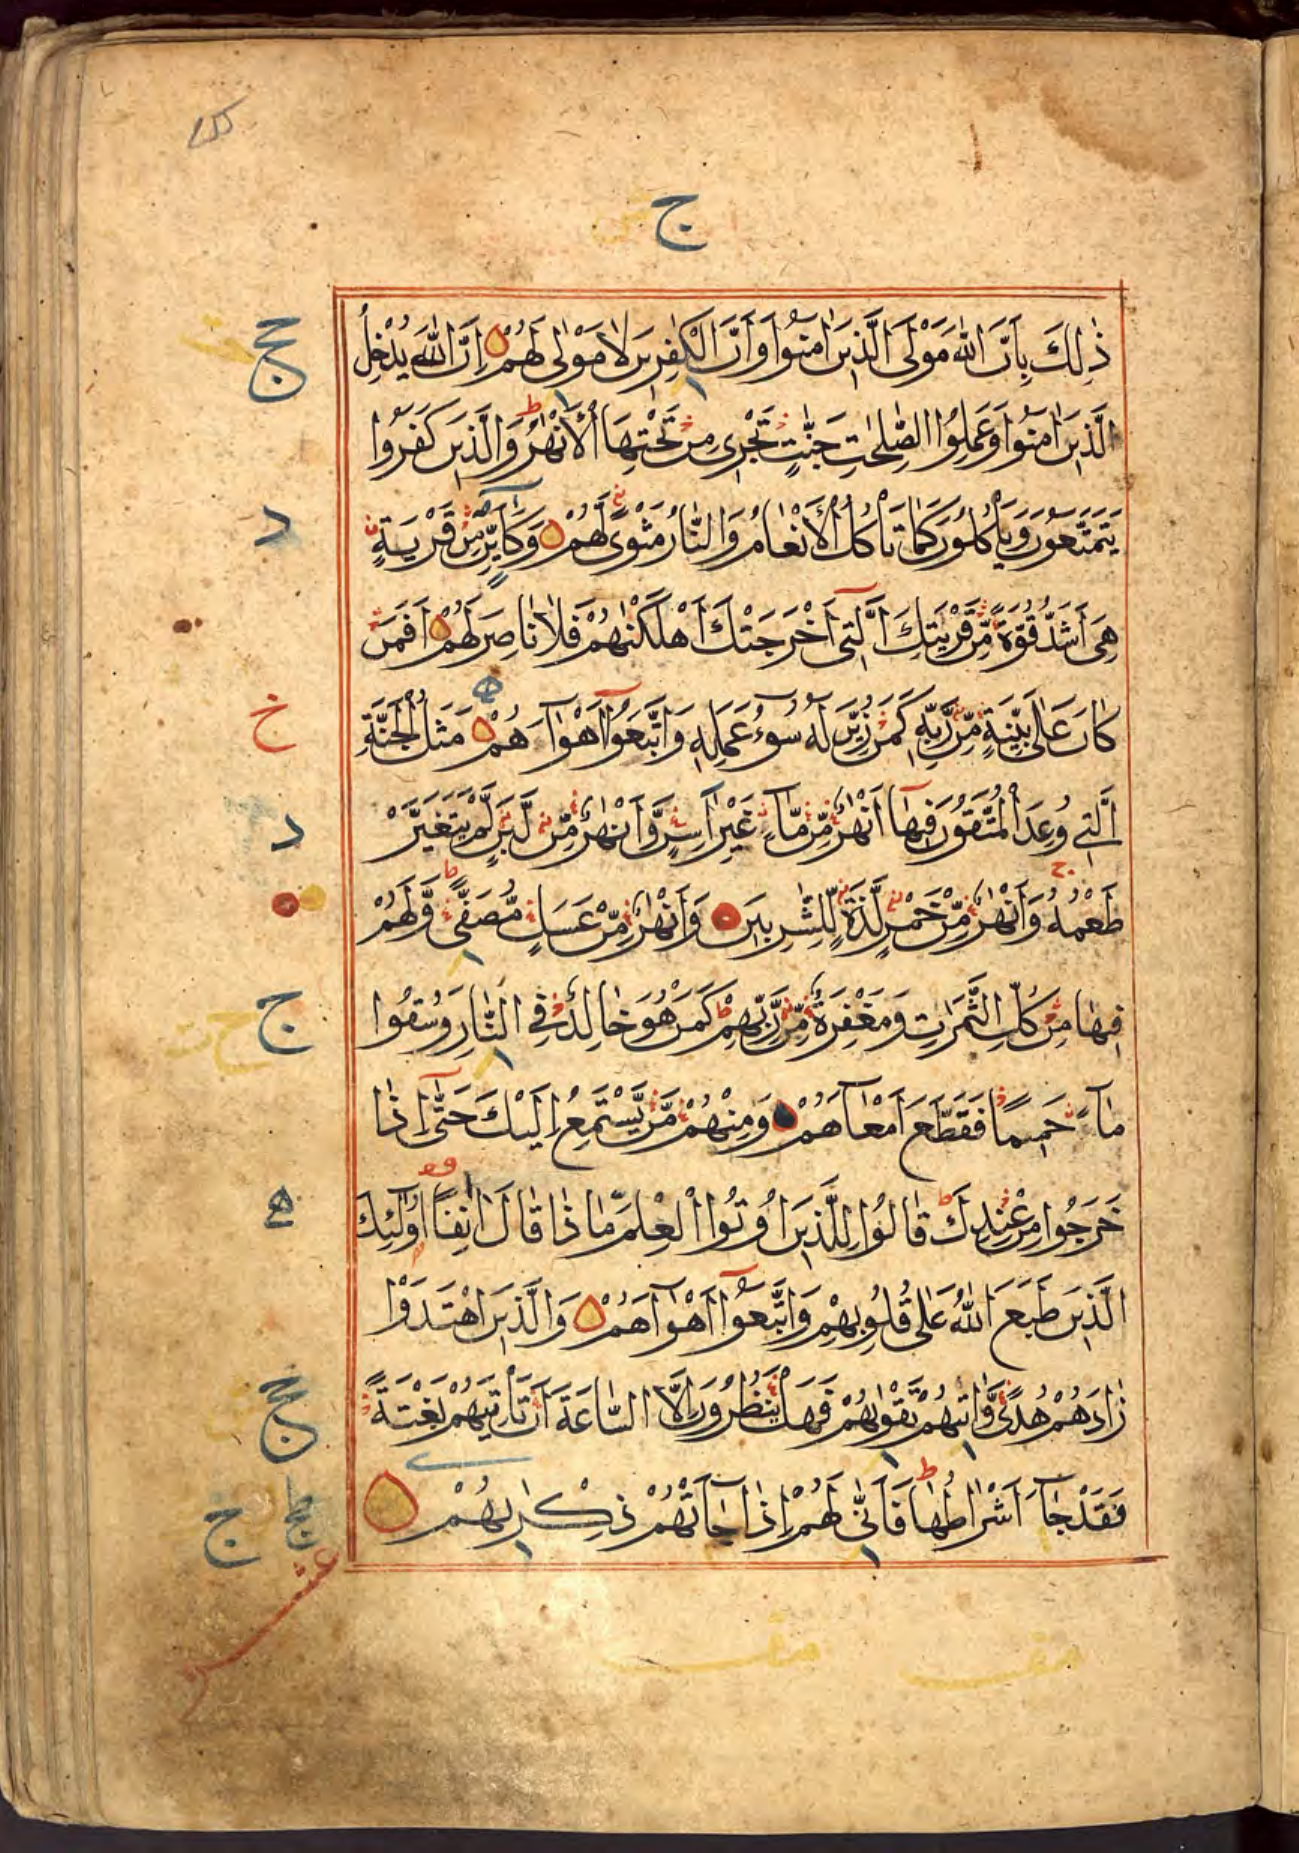 ج
ذٰلِكَ بِاَنَّ اللّٰهَ مَوْلَى الَّذِينَ اٰمَنُوا وَاَنَّ الْكٰفِرِينَ لَا مَوْلٰى لَهُمْ اِنَّ اللّٰهَ يُدْخِلُ
الَّذِينَ اٰمَنُوا وَعَمِلُوا الصّٰلِحٰتِ جَنّٰتٍ تَجْرِى مِنْ تَحْتِهَا الْاَنْهٰرُ وَالَّذِينَ كَفَرُوا
يَتَمَتَّعُونَ وَيَاْكُلُونَ كَمَا تَاْكُلُ الْاَنْعَامُ وَالنَّارُ مَثْوًى لَهُمْ وَكَاَيِّنْ مِنْ قَرْيَةٍ
هِىَ اَشَدُّ قُوَّةً مِنْ قَرْيَتِكَ الَّتِى اَخْرَجَتْكَ اَهْلَكْنٰهُمْ فَلَا نَاصِرَ لَهُمْ اَفَمَنْ
كَانَ عَلٰى بَيِّنَةٍ مِنْ رَبِّهِ كَمَنْ زُيِّنَ لَهُ سُوءُ عَمَلِهِ وَاتَّبَعُوا اَهْوَآءَهُمْ مَثَلُ الْجَنَّةِ
الَّتِى وُعِدَ الْمُتَّقُونَ فِيهَا اَنْهٰرٌ مِنْ مَآءٍ غَيْرِ اٰسِنٍ وَاَنْهٰرٌ مِنْ لَبَنٍ لَمْ يَتَغَيَّرْ
طَعْمُهُ وَاَنْهٰرٌ مِنْ خَمْرٍ لَذَّةٍ لِلشّٰرِبِينَ وَاَنْهٰرٌ مِنْ عَسَلٍ مُصَفًّى وَلَهُمْ
فِيهَا مِنْ كُلِّ الثَّمَرٰتِ وَمَغْفِرَةٌ مِنْ رَبِّهِمْ كَمَنْ هُوَ خَالِدٌ فِى النَّارِ وَسُقُوا
مَآءً حَمِيمًا فَقَطَّعَ اَمْعَآءَهُمْ وَمِنْهُمْ مَنْ يَسْتَمِعُ اِلَيْكَ حَتّٰى اِذَا
خَرَجُوا مِنْ عِنْدِكَ قَالُوا لِلَّذِينَ اُوتُوا الْعِلْمَ مَاذَا قَالَ اٰنِفًا اُولٰئِكَ
الَّذِينَ طَبَعَ اللّٰهُ عَلٰى قُلُوبِهِمْ وَاتَّبَعُوا اَهْوَآءَهُمْ وَالَّذِينَ اهْتَدَوْا
زَادَهُمْ هُدًى وَاٰتٰيهُمْ تَقْوٰيهُمْ فَهَلْ يَنْظُرُونَ اِلَّا السَّاعَةَ اَنْ تَاْتِيَهُمْ بَغْتَةً
فَقَدْ جَآءَ اَشْرَاطُهَا فَاَنّٰى لَهُمْ اِذَا جَآءَتْهُمْ ذِكْرٰيهُمْ
د
خ
د
ج
عشر